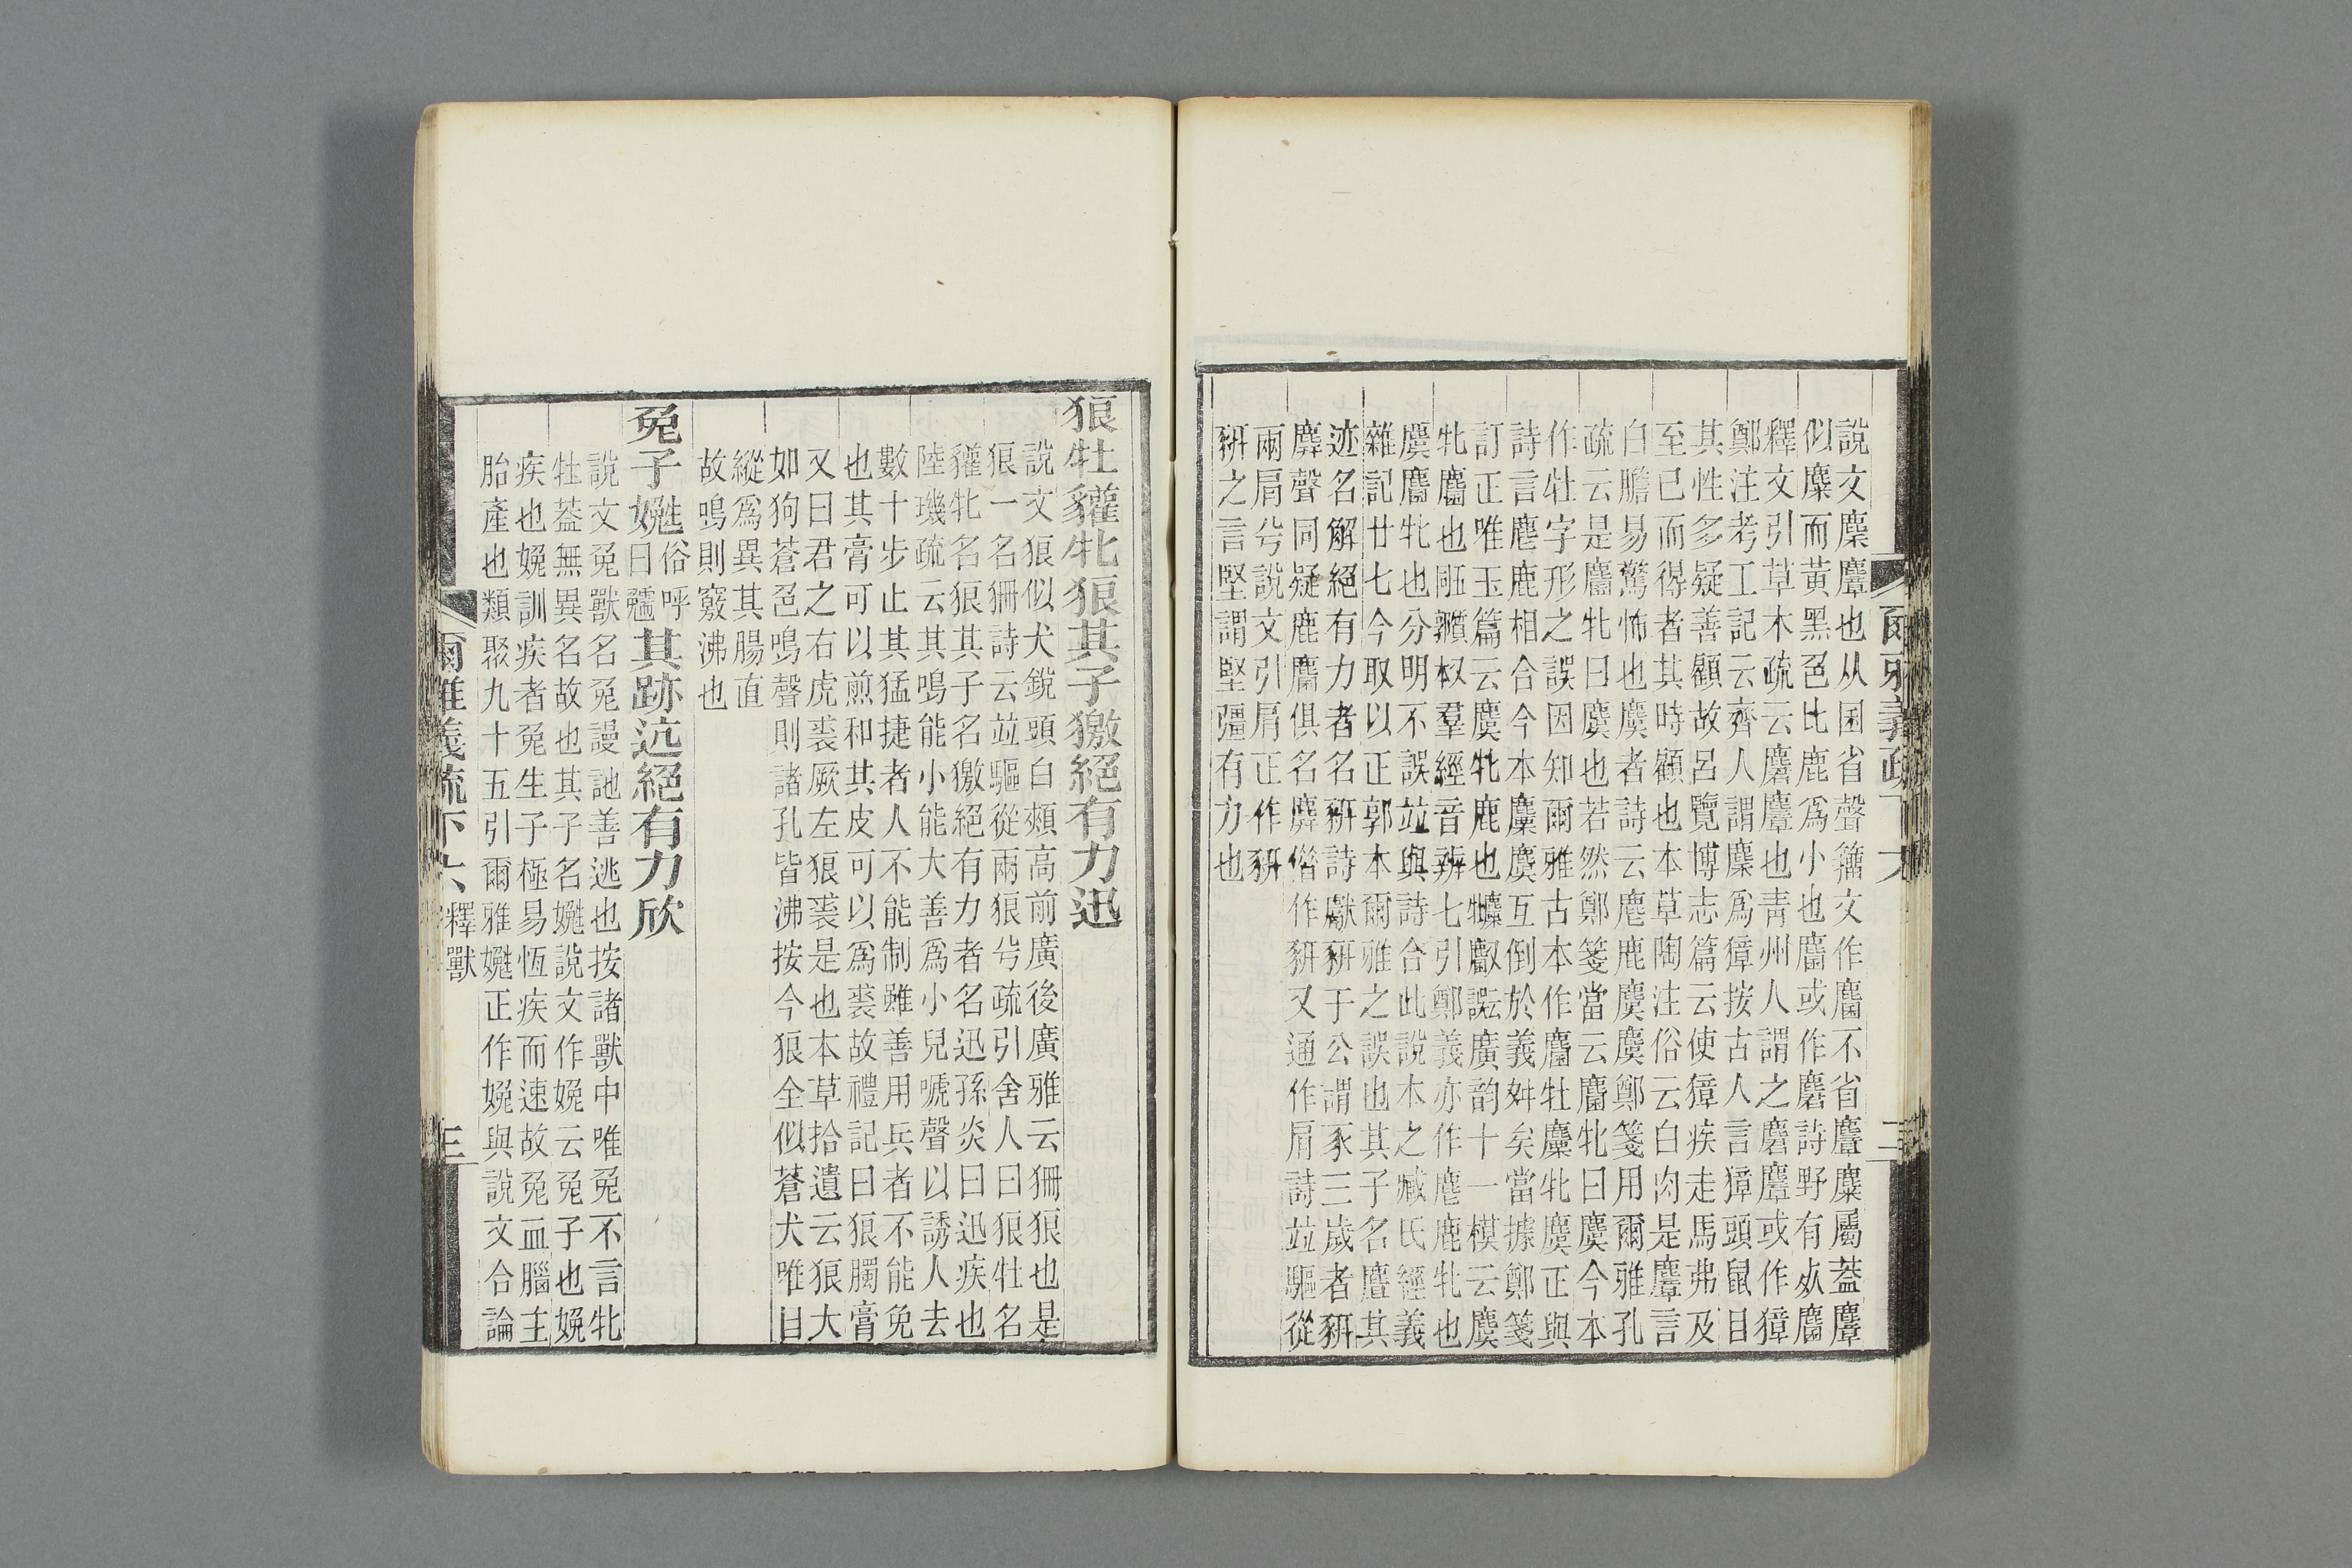 說文麇麞也从囷省聲籒文作麕不省麞麋屬葢麞
似麋而黃黑色比鹿爲小也麕或作麏詩野有死麕
釋文引草木疏云麏麞也靑州人謂之麏麞或作獐
鄭注考工記云齊人謂麇爲獐按古人言獐頭鼠目
其性多疑善顧故呂覽博志篇云使獐疾走馬弗及
至已而得者其時顧也本草陶注俗云白肉是麞言
白膽易驚怖也麌者詩云麀鹿麌麌鄭箋用爾雅孔
疏云是麕牝曰麌也若然鄭箋當云麕牝曰麌今本
作牡字形之誤因知爾雅古本作麕牡麇牝麌正與
詩言麀鹿相合今本麇麌互倒於義舛矣當據鄭箋
訂正唯玉篇云麌牝鹿也廣韵十一模云麌
牝麕也羣經音辨七引鄭義亦作麀鹿牝也
麌麕牝也分明不誤竝與詩合此說本之臧氏經義
雜記廿七今取以正郭本爾雅之誤也其子名麆其
迹名解絕有力者名豜詩獻豜于公謂豕三歲者豜
麉聲同疑鹿麕俱名麉偕作豜又通作肩詩竝驅從
兩肩兮說文引肩正作豜
豜之言堅謂堅彊有力也
爾雅義疏下六
二
狼牡貛牝狼其子獥絕有力迅
說文狼似犬銳頭白頰高前廣後廣雅云㹪狼也是
狼一名㹪詩云竝驅從兩狼兮疏引舍人曰狼牡名
貛牝名狼其子名獥絕有力者名迅孫炎曰迅疾也
陸璣疏云其鳴能小能大善爲小兒嗁聲以誘人去
數十步止其猛捷者人不能制雖善用兵者不能免
也其膏可以煎和其皮可以爲裘故禮記曰狼臅膏
又曰君之右虎裘厥左狼裘是也本草拾遺云狼大
如狗蒼色鳴聲則諸孔皆沸按今狼全似蒼犬唯目
縱爲異其腸直
故鳴則竅沸也
兔子嬎俗呼曰䨲其跡迒絕有力欣
說文兔獸名兔謾訑善逃也按諸獸中唯兔不言牝
牡葢無異名故也其子名嬎說文作娩云兔子也娩
疾也娩訓疾者兔生子極易恆疾而速故兔血腦主
胎產也類聚九十五引爾雅嬎正作娩與說文合論
爾雅義疏下六 釋獸
三